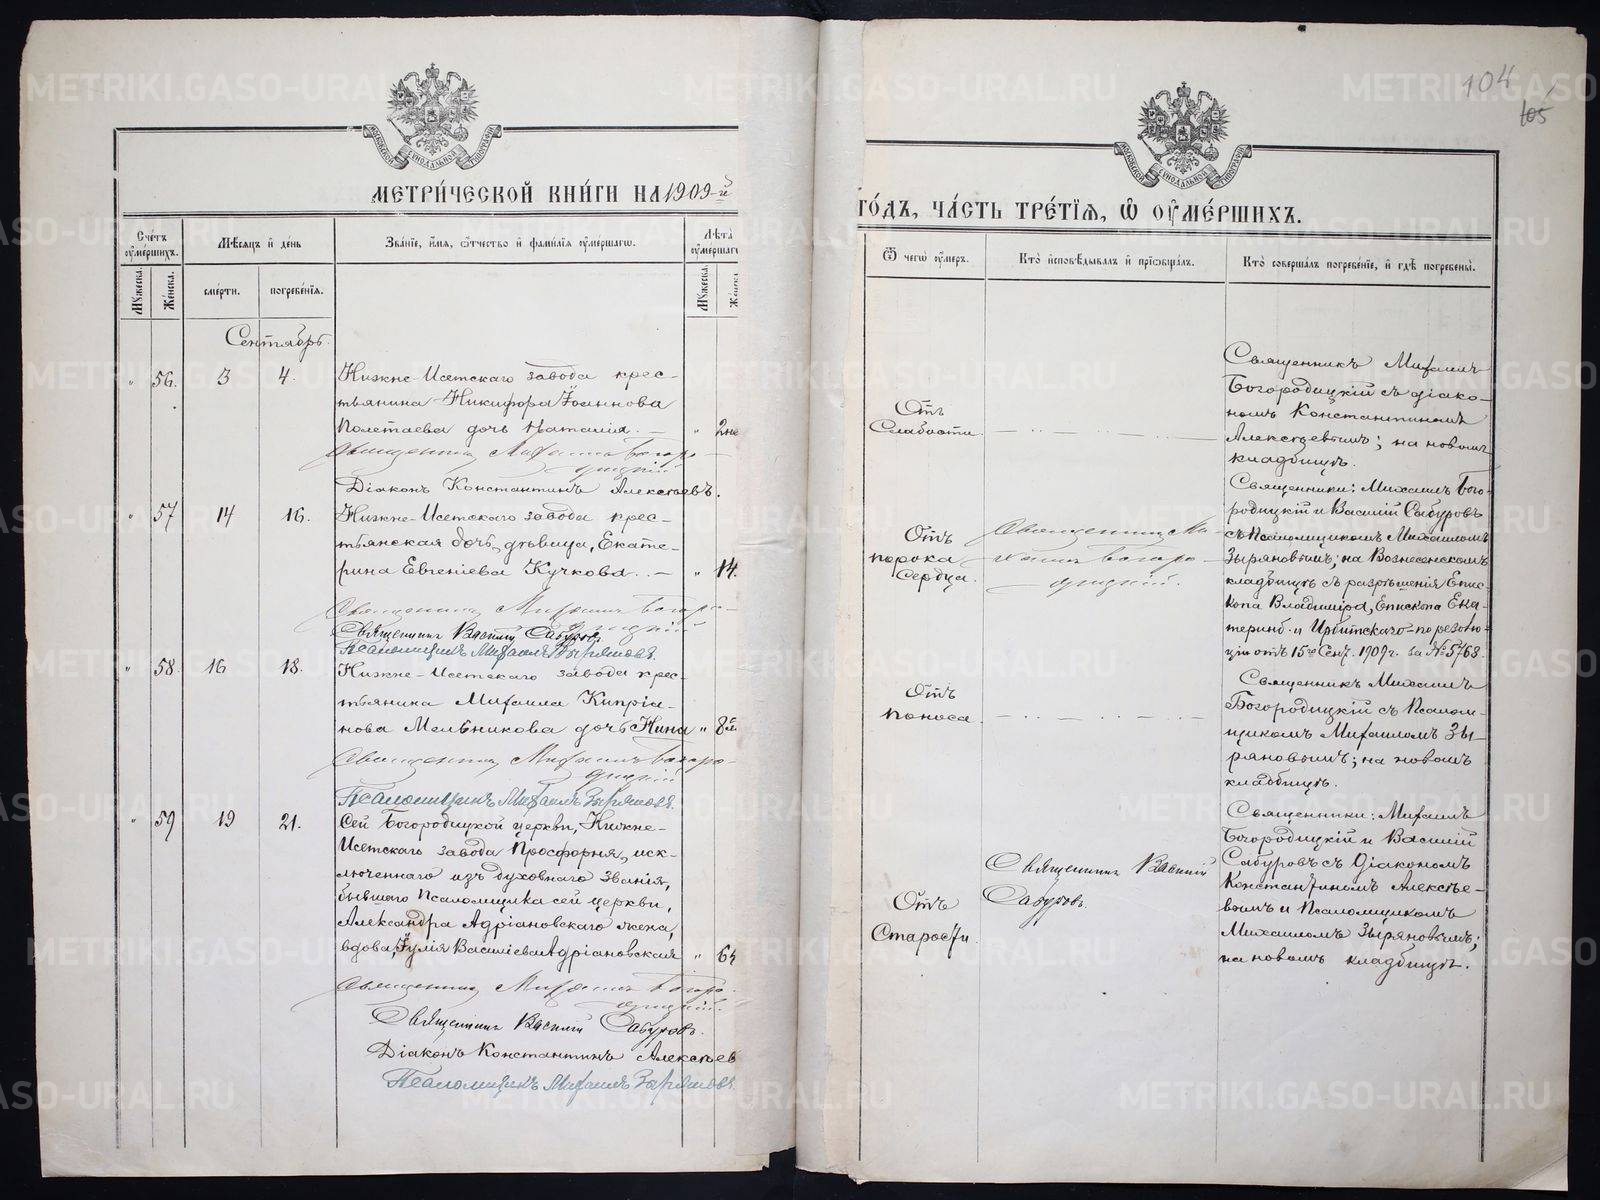 104
105
МЕТРИ́ЧЕСКОЙ КНИ́ГИ НА 1909-й
ГО́ДЪ, ЧА́СТЬ ТРЕ́ТІѦ, Ѡ ОУ҆МЕ́РШИХЪ.
Счетъ оу҆ме́ршихъ.
Мѣсяцъ и҆ де́нь
Зва́нїе, и҆мя, ѻ҆тчество и҆ фами́лїя оу҆ме́ршагѡ.
Лѣта оу҆ме́ршагѡ
Ѿ чегѡ̀ оу҆́меръ.
Кто̀ и҆сповѣ́дывалъ и҆ прїѡбща́лъ.
Кто̀ соверша́лъ погребе́нїе, и҆ гдѣ̀ погребены̀.
Мꙋжеска.
Же́нска.
сме́рти.
погребе́нїя.
Мꙋжеска.
Же́нска
Сентябрь.
" 56. 3 4.
Нижне-Исетскаго завода крес-
тьянина Никифора Іоаннова
Полетаева дочь Наталія. — " 2 не
Священникъ Михаилъ Богоро-
дицкій
Діаконъ Константинъ Алексѣевъ.
Отъ
Слабости.
Священникъ Михаилъ
Богородицкій съ діако-
номъ Константиномъ
Алексѣевымъ; на новомъ
кладбищѣ.
" 57 14 16.
Нижне-Исетскаго завода крес-
тьянская дочь, дѣвица, Екате-
рина Евгеніева Кучкова. — " 14.
Священникъ Михаилъ Богоро-
дицкій
Священникъ Василій Сабуровъ
Псаломщикъ Михаилъ Зыряновъ.
Отъ
порока
Сердца.
Священникъ Ми-
хаилъ Богоро-
дицкій.
Священники: Михаилъ Бого-
родицкій и Василій Сабуровъ
съ Псаломщикомъ Михаиломъ
Зыряновымъ; на Вознесенскомъ
кладбищѣ съ разрѣшенія Епис-
копа Владиміра, Епископа Ека-
теринб. и Ирбитскаго – по резолю-
ціи отъ 15го Сент. 1909 г. за № 5768.
" 58. 16 18.
Нижне-Исетскаго завода крес-
тьянина Михаила Кипріа-
нова Мельникова дочь Нина " 8
Священникъ Михаилъ Богоро-
дицкій
Псаломщикъ Михаилъ Зыряновъ.
Отъ
поноса
Священникъ Михаилъ
Богородицкій съ Псалом-
щикомъ Михаиломъ Зы-
ряновымъ; на новомъ
кладбищѣ.
" 59 19 21.
Сей Богородицкой церкви, Нижне-
Исетскаго завода Просфорня, иск-
люченнаго изъ духовнаго званія,
бывшаго Псаломщика сей церкви,
Александра Адріановскаго жена,
вдова, Іулія Василіева Адріановская "
Священникъ Михаилъ Богоро-
дицкій.
Священникъ Василій Сабуровъ.
Діаконъ Константинъ Алексѣев
Псаломщикъ Михаилъ Зыряновъ.
Отъ
Старости.
Священникъ Василій
Сабуровъ.
Священники: Михаилъ
Богородицкій и Василій
Сабуровъ съ Діакономъ
Константиномъ Алексѣе-
вымъ и Псаломщикомъ
Михаиломъ Зыряновымъ;
на новомъ кладбищѣ.